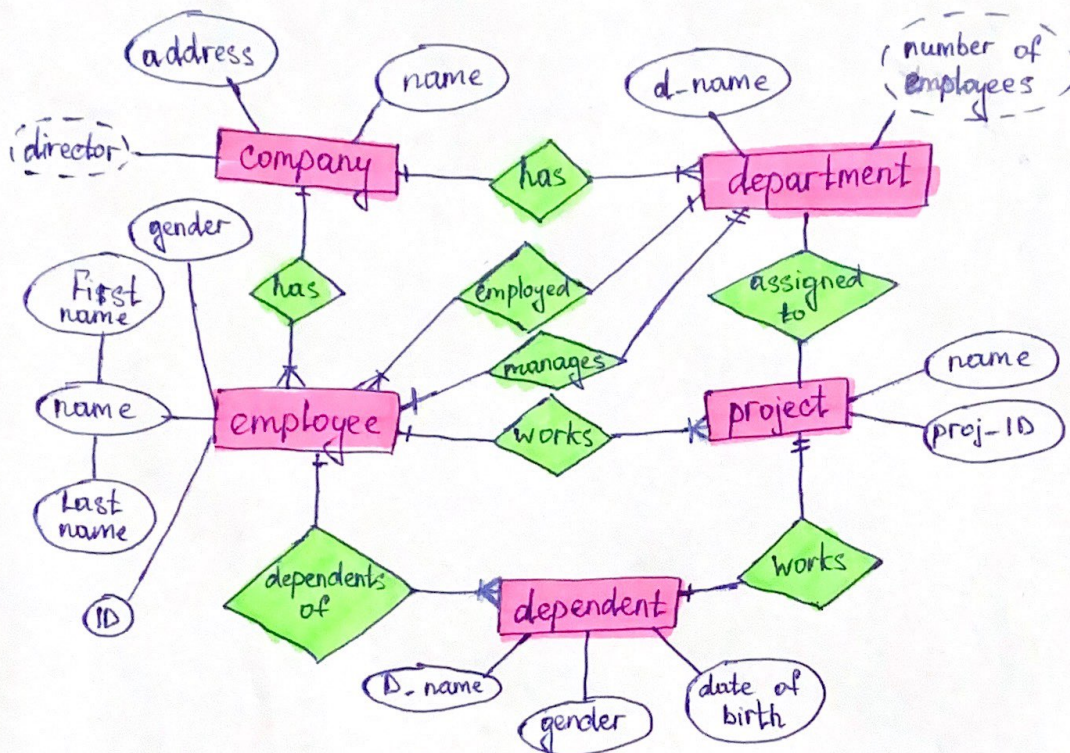 address
name
d-name
number of
employees
(director)
company
has
department
gender
First
name
has
employed
assigned
to
manages
name
name
employee
works
project
proj-ID
Last
name
dependents
of
works
ID
dependent
D-name
gender
date of
birth